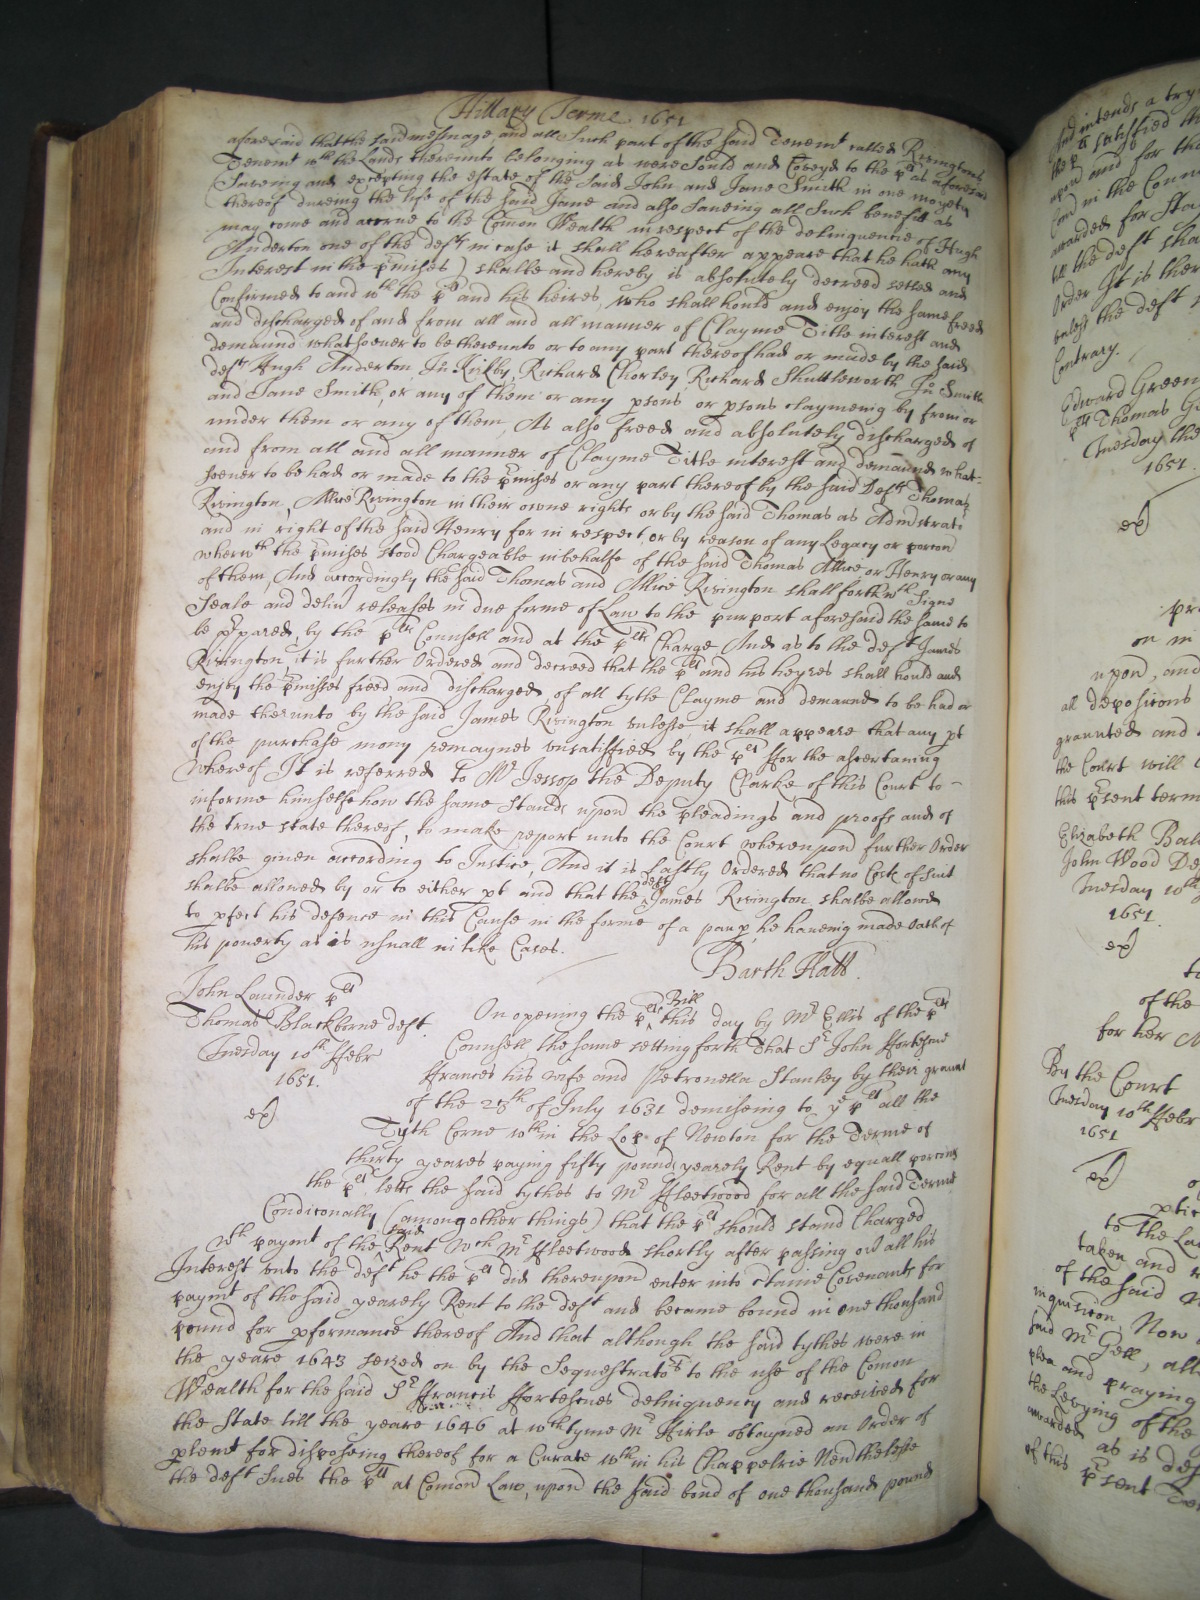 Hillary Terme 1651
aforesaid that the said messuage and all such part of the said Tenemt called Rivingtons
Tenemt wth the Lands thereunto belonging as were sould and Coveyd to the plt as aforesaid
(Saveing and excepting the estate of the said John and Jane Smith in one moyety
thereof dureing the life of the said Jane and also saveing all such benefitt as
may come and accrue to the Comon Wealth in respect of the delinquencie of Hugh
Anderton one of the defts in case it shall hereafter appeare that he hath any
Interest in the pmises) shalbe and hereby is absolutely decreed setled and
Confirmed to and wth the plt and his heires, who shall hould and enjoy the same freed
and discharged of and from all and all manner of Clayme Title interest and
demaund whatsoever to be thereunto or to any part thereof had or made by the said
defts Hugh Anderton Jn Kirkby, Richard Chorley Richard Shuttleworth Jn Smith
and Jane Smith or any of them or any psons or psons claymeing by from or
under them or any of them, As also freed and absolutely discharged of
and from all and all manner of Clayme Title interest and demaund what-
soever to be had or made to the pmises or any part thereof by the said Defts Thomas
Rivington, Allice Rivington in their owne right or by the said Thomas as Admstrat
and in right of the said Henry for in respect or by reason of any Legacy or porcon
wherewth the pmises stood Chargeable in behalfe of the said Thomas Allice or Henry or any
of them, And accordingly the said Thomas and Allice Rivington shall forthwth Signe
Seale and deliv releases in due forme of Law to the purport aforesaid the same to
be ppared by the plts Counsell and at the plts Charge And as to the deft James
Rivington it is further Ordered and decreed that the plt and his heyres shall hould and
enjoy the pmisses freed and discharged of all tytle Clayme and demaund to be had or
made thereunto by the said James Rivington unlesse it shall appeare that any pt
of the purchase mony remaynes unsatisfied by the plt ffor the ascertaning
whereof It is referred to Mr Jessop the Deputy Clarke of this Court to -
informe himselfe how the same Stands upon the pleadings and proofs and of
the true state thereof, to make report unto the Court whereupon further Order
shalbe given according to Justice, And it is Lastly Ordered that no Cost of suit
shalbe allowed by or to either pt and that the deft James Rivington shalbe allowed
to pfect his defence in this Cause in the forme of a paup, he haveing made oath of
his poverty as is usuall in like Cases.
Barth Hall
John Lavinder plt
Thomas Blackborne deft.
Tuesday 10th ffebr
1651.
ex
On opening the plts Bill this day by Mr Ellis of the plts
Counsell, the same setting forth That Sr John ffortescue
ffrances his wife and Petronella Stanley by their graunt
of the 25th of July 1631 demiseing to ye plt all the
Tyth Corne wthin the Lopp of Newton for the Terme of
thirty yeares paying fifty pounds yearely Rent by equall porcons
the plt letts the said tythes to Mr ffleetwood for all the said Terme
Condiconally (among other things) that the plt should stand Charged
wth paymt of the said Rent Wch Mr ffleetwood shortly after passing over all his
Interest unto the deft he the plt did thereupon enter into Covenants for
paymt of the said yearely Rent to the deft and became bound in one thousand
pound for pformance thereof And that although the said tythes were in
the yeare 1643 seized on by the Sequestrators to the use of the Comon
Wealth for the said Sr ffrancis ffortescues delinquency and received for
the State till the yeare 1646 at wch tyme Mr Hirle obtayned an Order of
plemt for disposeing thereof for a Curate wthin his Chappelrie Neverthelesse
the deft sues the plt at Comon Law, upon the said bond of one thousand pounds
and intends a try
the plt satisfied
upon and for
awarded for Sta
till the deft sha
Order It is ther
unless the deft
Contrary.
Edward Green
plt Thomas
Tuesday the
1651.
ex
on
upon, and
all depositions
graunted and
the Court will
this psent term
Elizabeth
John Wood De
Tuesday 10th
1651
ex
of the
for her
By the Court
Tuesday 10th ffebr
1651
ex
to the La
taken and
of the said
inquisicon Now
said Mr Gell, all
plea and praying
the Levying of the
awarded as is des
of this psent